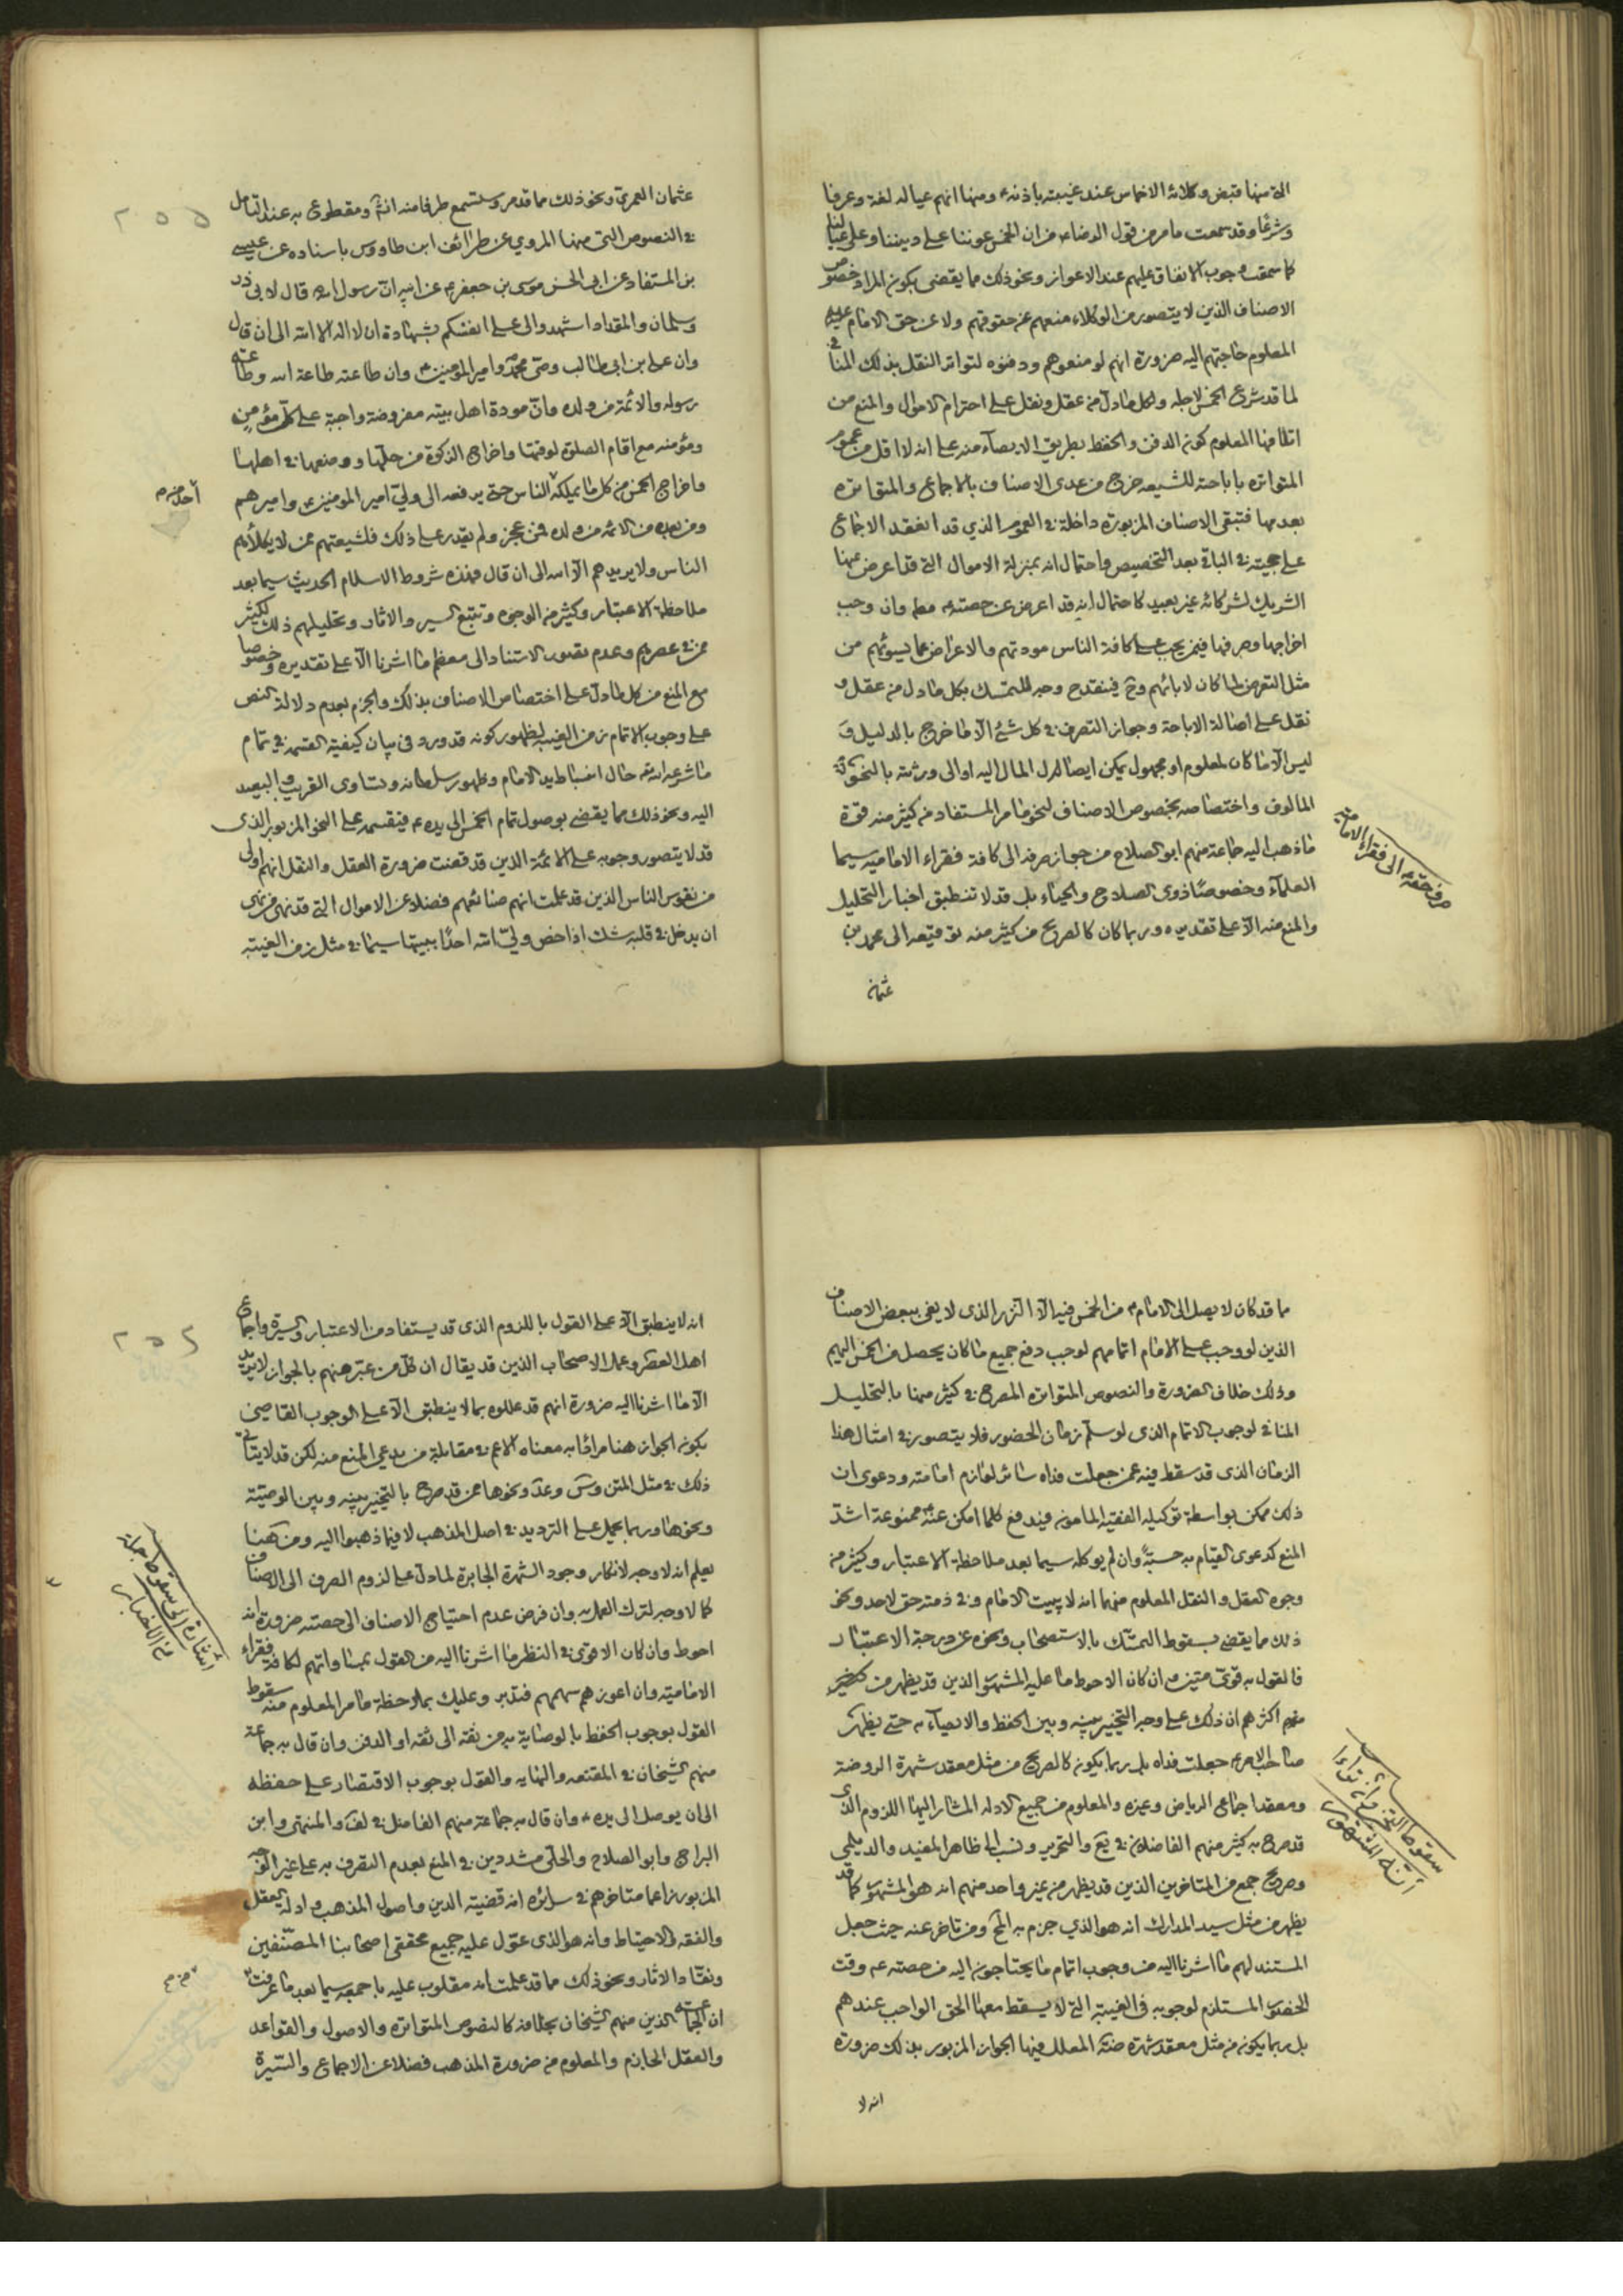 التي منها قبض وكلائه الاخماس عند غيبته باذنه ومنها انهم عياله لغة وعرفا
وشرعا وقد سمعت ما مر من قول الرضا من ان الخمس عوننا على ديننا وعلى عيالنا
كما سمعت وجوب الانفاق عليهم عند الاعواز ونحو ذلك مما يقتضي بكون المراد خصوص
الاصناف الذين لا يتصور من الوكلاء منعهم عن حقوقهم ولا عن حق الامام عليه
المعلوم حاجتهم اليه ضرورة انهم لو منعوهم ودفنوه لتواتر النقل بذلك المنافي
لما قد شرع الخمس لاجله ولكل ما دل من عقل ونقل على احترام الاموال والمنع من
اتلافها المعلوم كون الدفن والحفظ بطريق الايصاء منه على انه لا اقل من عموم
المتواتره باباحته للشيعه خرج من عدى الاصناف بالاجماع والمتواتره
بعد منها فتبقى الاصناف المزبورة داخلة في العموم الذي قد انعقد الاجماع
على حجيته في الباقي بعد التخصيص واحتمال انه بمنزلة الاموال التي قد اعرض عنها
الشريك لشركائه غير بعيد كاحتمال انه قد اعرض عن حصته وان وجب
اخراجها وصرفها فيمن يجب على كافة الناس مودتهم والاعراض عما يسوئهم من
مثل التعرض لما كان لابائهم وح فينقدح وجه للتمسك بكل ما دل من عقل و
نقل على اصالة الاباحة وجواز التصرف في كل شئ الا ما خرج بالدليل و
ليس الا ما كان لمعلوم او مجهول يمكن ايصال المال اليه او الى ورثته بالنحو
المالوف واختصاصه بخصوص الاصناف لنحو ما مر المستفاد من كثير منه قوة
ما ذهب اليه جماعة منهم ابو الصلاح من جواز صرفه الى كافة فقراء الاماميه سيما
العلماء وخصوصا ذوى الصلاح والحياء بل قد لا تنطبق اخبار التحليل
والمنع منه الا على تقديره وربما كان كالصريح من كثير منه توقيعه الى محمد بن
عثمان
صرف حقه الى فقراء الامامية
٢٥٥
عثمان العمري ونحو ذلك مما قد مر وستسمع طرفا منه انش ومقطوع به عند التامل
في النصوص التي منها المروي عن طرائف ابن طاووس باسناده عن عيسى
بن المستفاد عن ابي الحسن موسى بن جعفر عن ابيه ان رسول الله قال لابي ذر
وسلمان والمقداد اشهدوني على انفسكم بشهادة ان لا اله الا الله الى ان قال
وان على بن ابي طالب وصي محمد وامير المؤمنين وان طاعته طاعة الله وطاعة
رسوله والائمة من ولده وان مودة اهل بيته مفروضة واجبة على كل مؤمن
ومؤمنه مع اقام الصلوة لوقتها واخراج الزكوة من حلها ووضعها في اهلها
واخراج الخمس من كل ما يملكه الناس حتى يرفعه الى ولي امير المؤمنين واميرهم
ومن بعده من الائمه من ولده فمن عجز ولم يقدر على ذلك فلشيعتهم ممن لا ياكل بهم
الناس ولا يريد بهم الا الله الى ان قال فهذه شروط الاسلام الحديث سيما بعد
ملاحظة الاعتبار وكثير من الوجوه وتتبع السير والاثار وتحليلهم ذلك لكثير
ممن في عصرهم وعدم تصور الاستناد الى معظم ما اشرنا الا على تقديره وخصوصا
مع المنع من كل ما دل على اختصاص الاصناف بذلك والجزم بعدم دلالة النص
على وجوب الاتمام زمن الغيبه لظهور كونه قد ورد في بيان كيفية القسمه في تمام
ما شرعه الله حال انبساط يد الامام وظهور سلطانه وتساوى القريب والبعيد
اليه ونحو ذلك مما يقضي بوصول تمام الخمس الى يده فيقسمه على النحو المزبور الذى
قد لا يتصور وجوبه على الائمة الذين قد قضت ضرورة العقل والنقل انهم اولى
من نفوس الناس الذين قد علمت انهم صنائعهم فضلا عن الاموال التي قد نهى من نهى
ان يدخل في قلبه شك اذا خص ولي الله احدا ببيتها سيما في مثل زمن الغيبته
٢٥٦
ما قد كان لا يصل الى الامام من الخمس فيه الا النزر الذى لا يفى ببعض الاصناف
الذين لو وجب على الامام اتمامهم لوجب دفع جميع ما كان يحصل من الخمس اليهم
وذلك خلاف الضرورة والنصوص المتواتره المصرح في كثير منها بالتحليل
المنافي لوجوب الاتمام الذى لو سلم زمان الحضور فلا يتصور في امثال هذا
الزمان الذى قد سقط فيه عمن جعلت فداه سائر لوازم امامته ودعوى ان
ذلك ممكن بواسطة توكيله الفقيه المامون فيدفع كلما امكن عنه ممنوعة اشد
المنع كدعوى القيام به حسبة وان لم يوكله سيما بعد ملاحظة الاعتبار وكثير من
وجوه العقل والنقل المعلوم منهما انه لا يبيت الامام وفي ذمته حق لاحد ونحو
ذلك مما يقضي بسقوط التمسك بالاستصحاب ونحوه عن درجة الاعتبار
فالقول به قوي متين وان كان الاحوط ما عليه المشهور الذين قد يظهر من كثير
منهم اكثرهم ان ذلك على وجه التخيير بينه وبين الحفظ والايصاء به حتى يظهر
صاحب الامر جعلت فداه بل ربما يكون كالصريح من مثل معقد شهرة الروضة
ومعقد اجماع الرياض وغيره والمعلوم من جميع الادله المشار اليها اللزوم الذى
قد صرح به كثير منهم الفاضلان في يع والتحرير ونسب الى ظاهر المفيد والديلمي
وصريح جمع من المتاخرين الذين قد يظهر من غير واحد منهم انه هو المشهور كما قد
يظهر من مثل سيد المدارك انه هو الذي جزم به المح ومن تاخر عنه حيث جعل
المستند لهم ما اشرنا اليه من وجوب اتمام ما يحتاجون اليه من حصته وقت
الحضور المستلزم لوجوبه في الغيبة التي لا يسقط معها الحق الواجب عندهم
بل ربما يكون من مثل معقد شهرة ضته المعلل فيها الجواز المزبور بذلك ضرورة
انه لا
انه لا ينطبق الا على القول باللزوم الذى قد يستفاد من الاعتبار والسيرة واجماع
اهل العصر وعمل الاصحاب الذين قد يقال ان كل من عبر منهم بالجواز لا يريد
الا ما اشرنا اليه ضرورة انهم قد عللوه بما لا ينطبق الا على الوجوب القاضي
بكون الجواز هنا مرادا به معناه الاعم في مقابلة من يدعي المنع منه لكن قد لا يتاتى
ذلك في مثل المتن وس وعد ونحوها ممن قد صرح بالتخيير بينه وبين الوصية
ونحوها وربما يحمل على الترديد في اصل المذهب لا فيما ذهبوا اليه ومن هنا
يعلم انه لا وجه لانكار وجود الشهرة الجابرة لما دل على لزوم الصرف الى الاصناف
كما لا وجه لترك العمل به وان فرض عدم احتياج الاصناف الى حصته ضرورة انه
احوط وان كان الاقوى في النظر ما اشرنا اليه من القول بمساواتهم لكافة فقراء
الاماميه وان اعوزهم سهمهم فتدبر وعليك بملاحظة ما مر المعلوم منه سقوط
القول بوجوب الحفظ بالوصاية به من ثقه الى ثقه او الدفن وان قال به جماعة
منهم الشيخان في المقنعه والنهايه والقول بوجوب الاقتصار على حفظه
الى ان يوصل الى يده وان قال به جماعة منهم الفاضل في لف والمنتهى وابن
البراج وابو الصلاح والحلي مشددين في المنع بعدم التصرف به على غير النحو
المزبور زاعما متاخرهم في سرائره انه قضية الدين واصول المذهب وادلة العقل
والفقه والاحتياط وانه هو الذى عول عليه جميع محققي اصحابنا المصنفين
ونقاد الاثار ونحو ذلك مما قد علمت انه مقلوب عليه باجمعه سيما بعد ما عرفت
ان الجماعة الذين منهم الشيخان بخلافه كالنصوص المتواتره والاصول والقواعد
والعقل الجازم والمعلوم من ضرورة المذهب فضلا عن الاجماع والسيرة